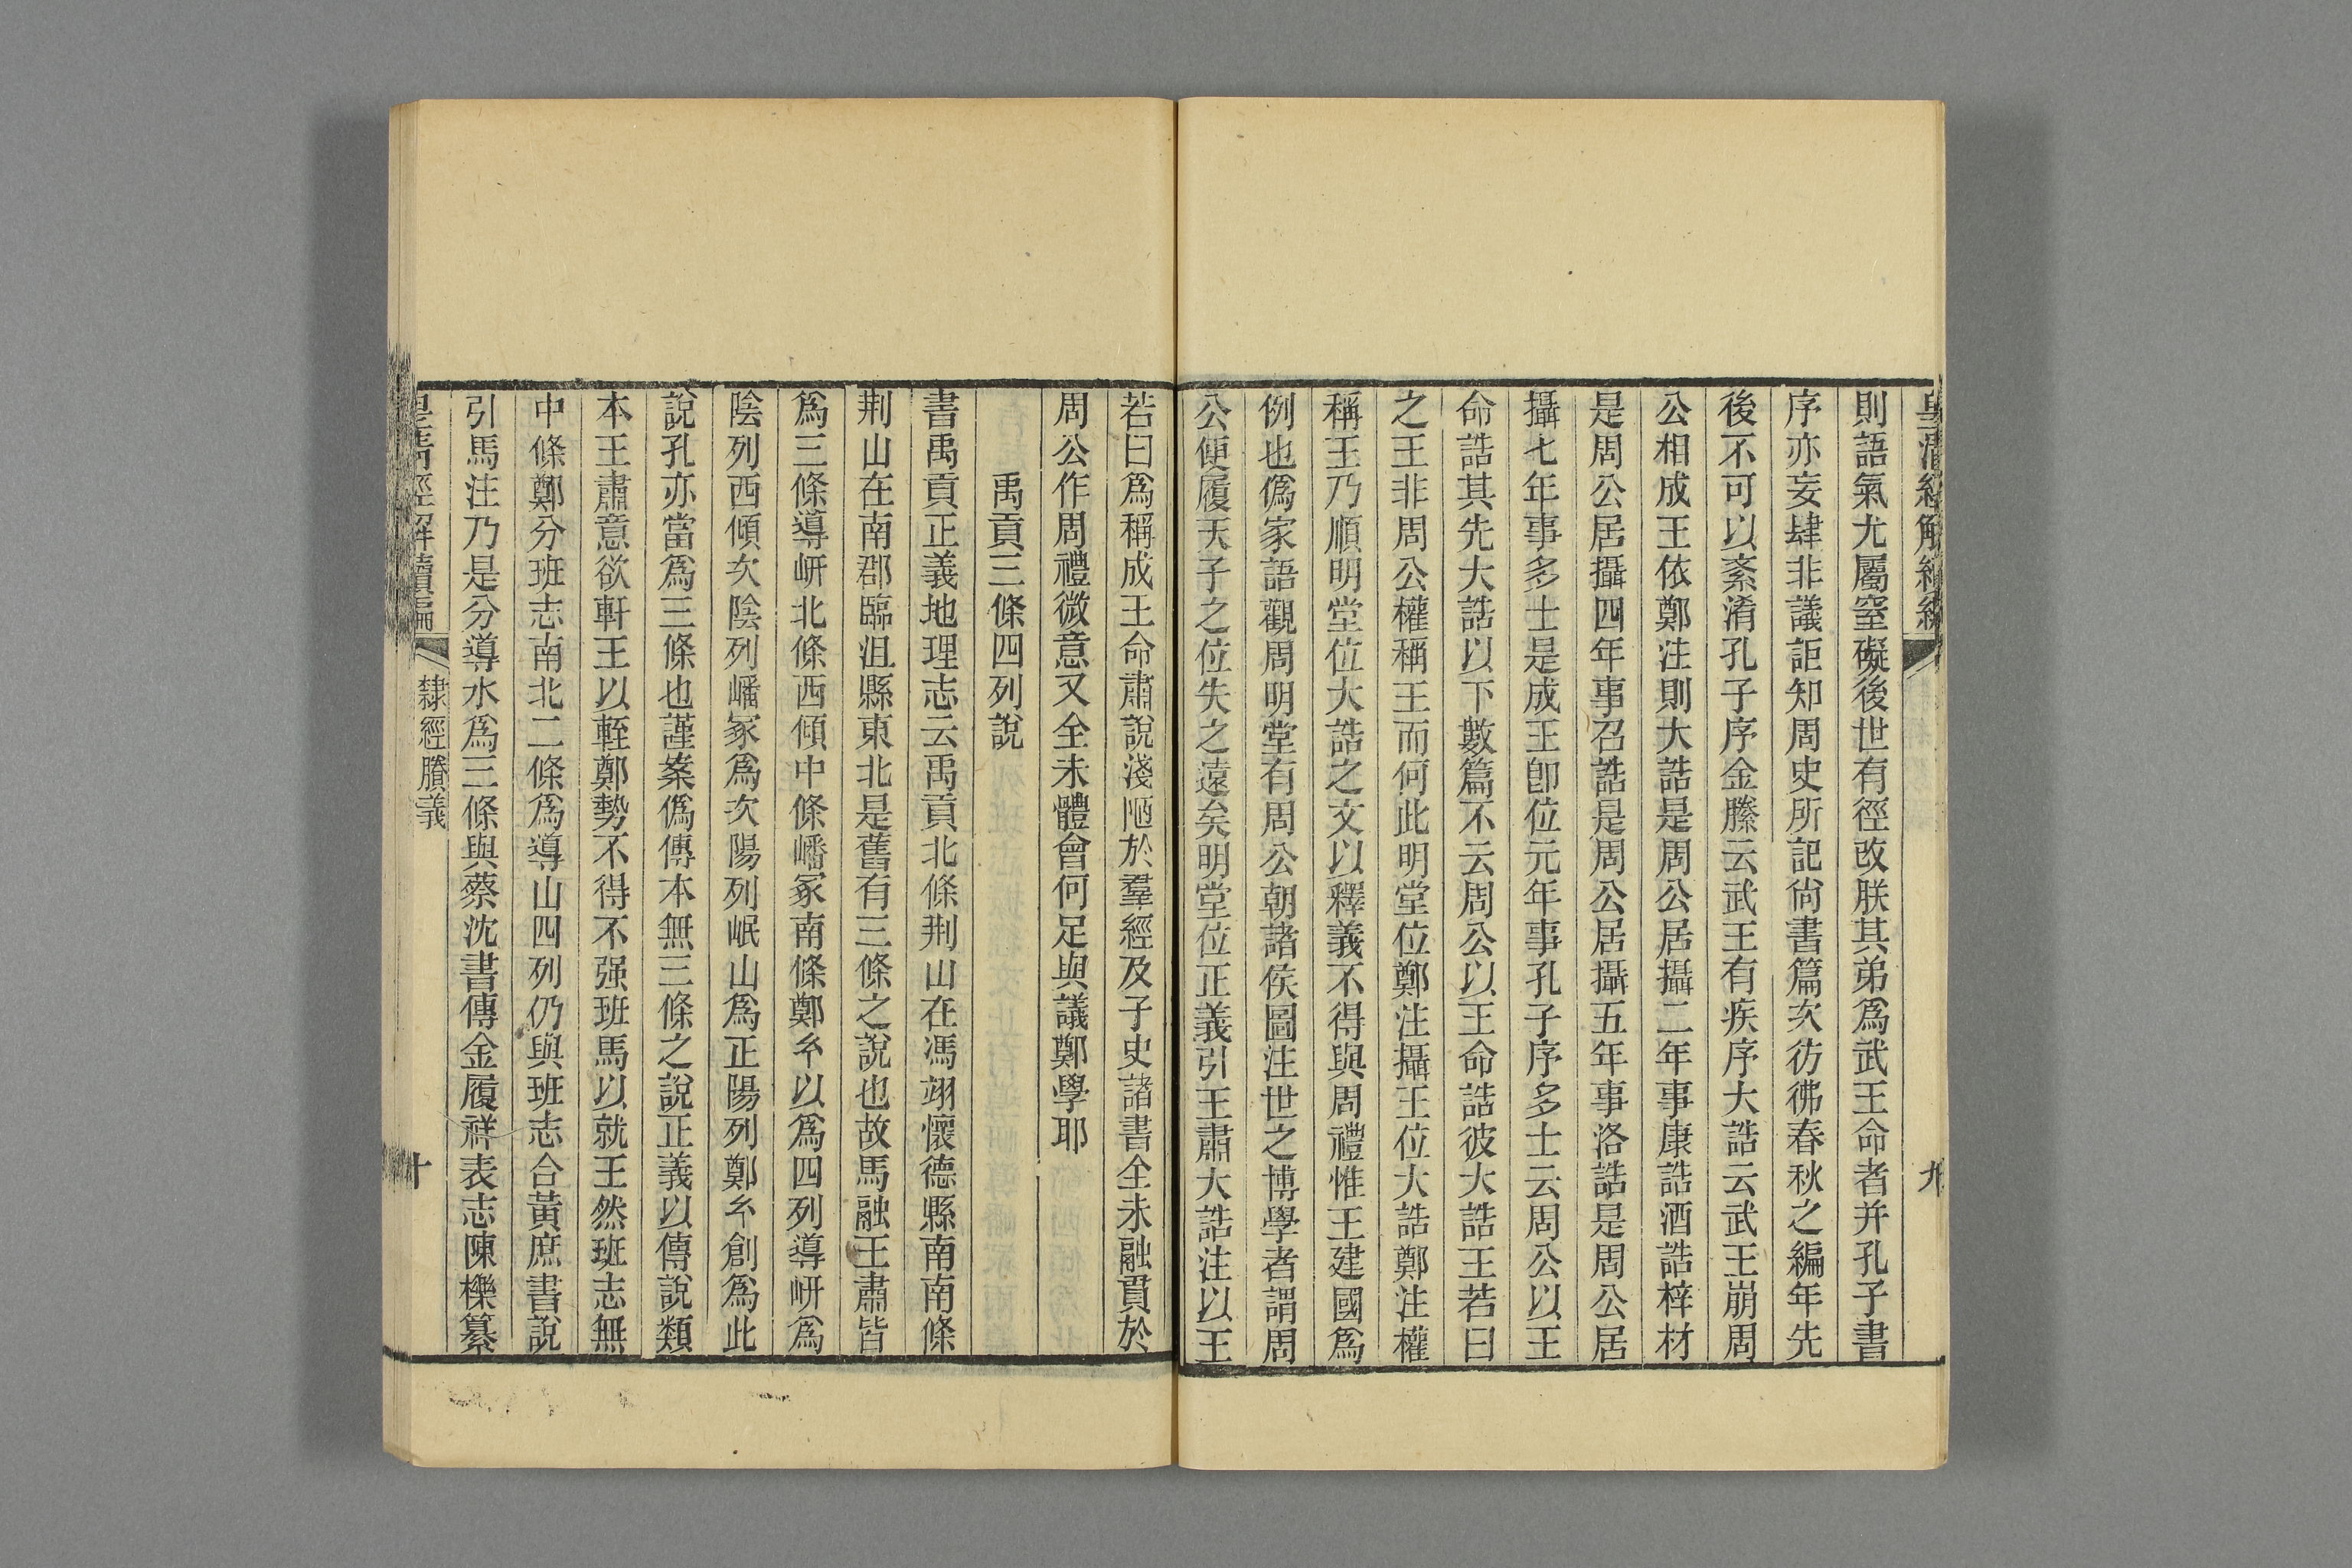 皇清經解續編
九
則語氣尤屬窒礙後世有徑改朕其弟爲武王命者并孔子書
序亦妄肆非議詎知周史所記尙書篇次彷彿春秋之編年先
後不可以紊淆孔子序金縢云武王有疾序大誥云武王崩周
公相成王依鄭注則大誥是周公居攝二年事康誥酒誥梓材
是周公居攝四年事召誥是周公居攝五年事洛誥是周公居
攝七年事多士是成王卽位元年事孔子序多士云周公以王
命誥其先大誥以下數篇不云周公以王命誥彼大誥王若曰
之王非周公權稱王而何此明堂位鄭注攝王位大誥鄭注權
稱王乃順明堂位大誥之文以釋義不得與周禮惟王建國爲
例也僞家語觀周明堂有周公朝諸侯圖注世之博學者謂周
公便履天子之位失之遠矣明堂位正義引王肅大誥注以王
若曰爲稱成王命肅說淺陋於羣經及子史諸書全未融貫於
周公作周禮微意又全未體會何足與議鄭學耶
禹貢三條四列說
書禹貢正義地理志云禹貢北條荆山在馮翊懷德縣南南條
荆山在南郡臨沮縣東北是舊有三條之說也故馬融王肅皆
爲三條導岍北條西傾中條嶓冢南條鄭玄以爲四列導岍爲
陰列西傾次陰列嶓冢爲次陽列岷山爲正陽列鄭玄創爲此
說孔亦當爲三條也謹案僞傳本無三條之說正義以傳說類
本王肅意欲軒王以輊鄭勢不得不强班馬以就王然班志無
中條鄭分班志南北二條爲導山四列仍與班志合黃庶書說
引馬注乃是分導水爲三條與蔡沈書傳金履祥表志陳櫟纂
皇清經解續編
隸經賸義
十